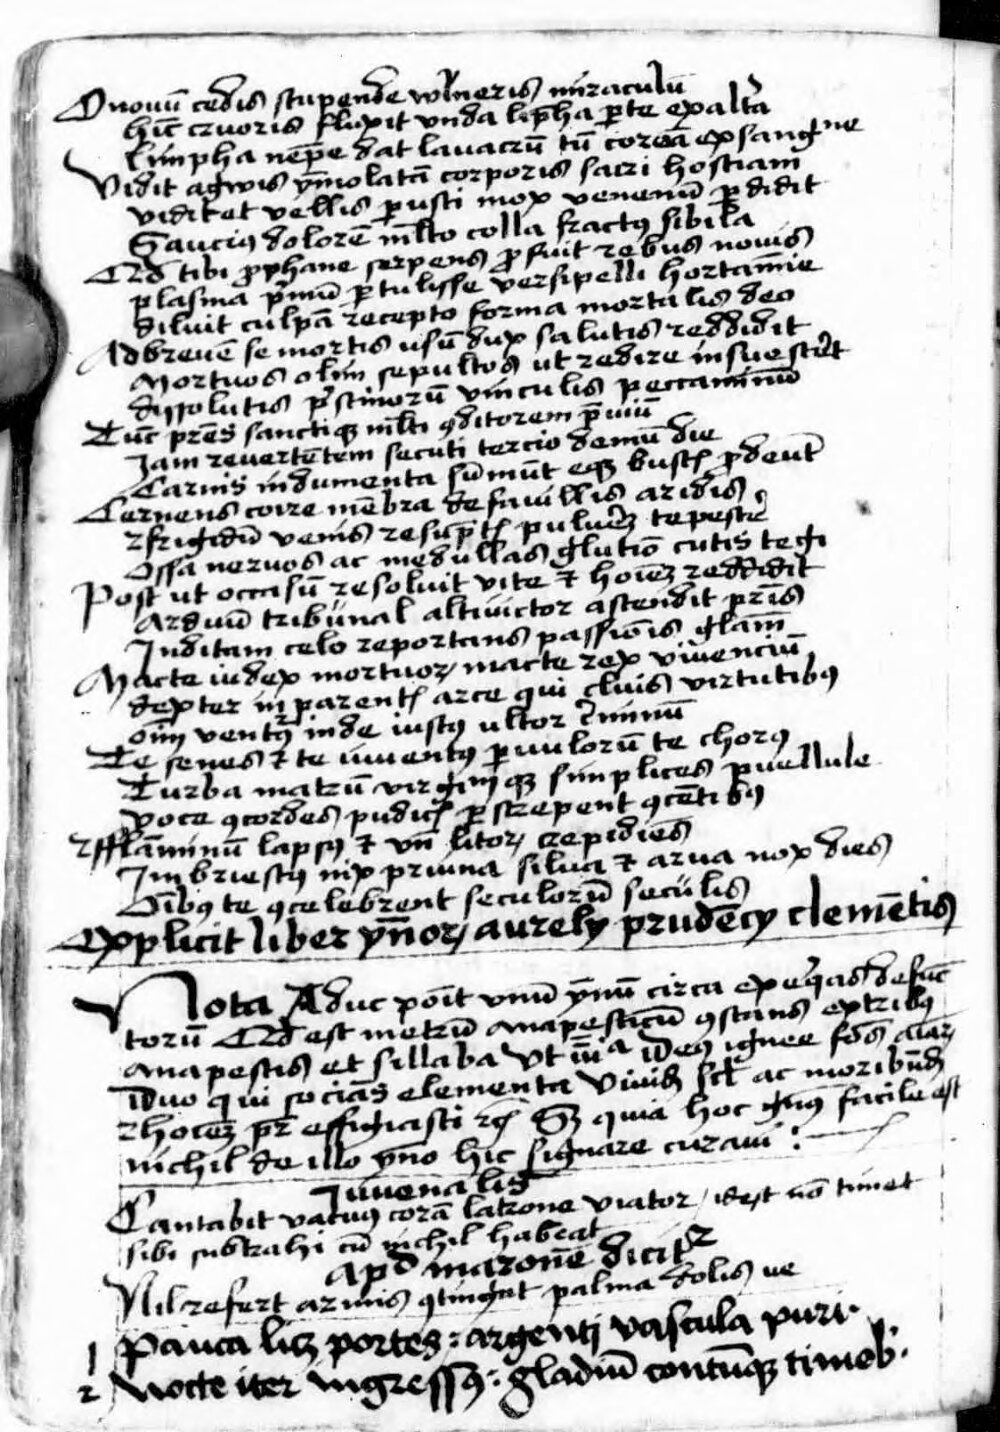 O novũ cedis stupende wlneris miraculũ
hĩc cruoris fluxit unda lĩpha ꝑte ex altr̃a
limpha nẽpe dat lavacrũ tũ coronã ex sangwine
Vidit agwis ỹmolatã corporis sacri hostiam
vidit et vellis ꝑusti mox venenũ ꝑdidit
Saucius dolorẽ ml̃to colla fractus sibila
Qd tibi ꝓphane serpens ꝓfuit rebus novis
plasma pͥmũ ꝑtulisse versipelli hortamĩe
diluit culpã recepto forma mortalis deo
Ad brevẽ se mortis usũ dux salutis reddidit
Mortuos olim sepultos ut redire insuescẽt
dissolutis pͥstinorũ vinculis peccaminũ
Tũc pr̃es sanctiqꝫ ml̃ti ꝯditorem p̃viũ
Jam revertẽtem secuti tercio demũ die
Carnis indumenta sũmũt eqꝫ bustis ꝓdeũt
Cernens coire mẽbra de favillis aridis
frigidũ venis resũptis pulveꝫ tepescẽ
Ossa nervos ac medullas glutĩo cutis tegi
Post ut occasũ resoluit vite ⁊ hoĩeꝫ reddidit
Arduũ tribunal alti victor ascendit pr̃is
Inditam celo reportans passiõis glãm
Macte iudex mortuoꝝ macte rex vivenciũ
dexter in parentis arce qui cluis virtutibꝰ
oĩm venturꝰ inde iustꝰ ultor crͥminũ
Te senes ⁊ te iuventꝰ ꝑvulorũ te chorꝰ
Turba matrũ virginũqꝫ simplices puellule
voce ꝯcordes pudicis ꝑstrepent ꝯcẽtibꝰ
flãminũ lapsꝰ ⁊ un̄ litoꝝ crepidiẽs
Imbr estꝰ nix pruina silva ⁊ aura nox dies
Oĩbꝰ te ꝯcelebrent seculorũ seculis
Explicit liber ỹnoꝝ aurely prudẽcy clemẽtis
Nota Adhuc põit unũ ỹmũ circa exeqͥas defũc
torũ Qd est metrũ anapesticũ ꝯstans ex tribꝰ
anapestis et sillaba Ut in̄ a deꝰ ignee fõs aĩaꝝ
Duo qui sociãs elementa Vivũ sĩl ac moribũdũ
hoĩeꝫ pr̃ effigiasti ⁊c̃ Sꝫ quia hoc genꝰ facile est
nichil de illo ỹno hic signare curavi :
Iuvenalis
Cantabit vacuus corã latrone viator / idest nõ timet
sibi subtrahi cũ nichil habeat
Apd maronẽ dicitͬ
Nil refert armis ꝯtingat palma dolis ve
1 Pauca licꝫ portes : argenti vascula puri .
2 Nocte iter ingressꝰ : gladiũ contũqꝫ timeb .